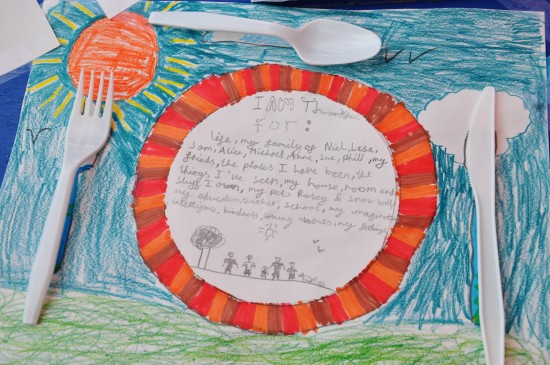 I AM Thankful
for:
life, my family of Niel, Lisa,
Sam, Alice, Michael, Anne, Sue, Phill, my
friends, the places I have been, the
things I've seen, my house, room and
stuff I own, my pet Rosey & snow ball,
my education, teacher, school, my imagination
inteligence, kindness, my